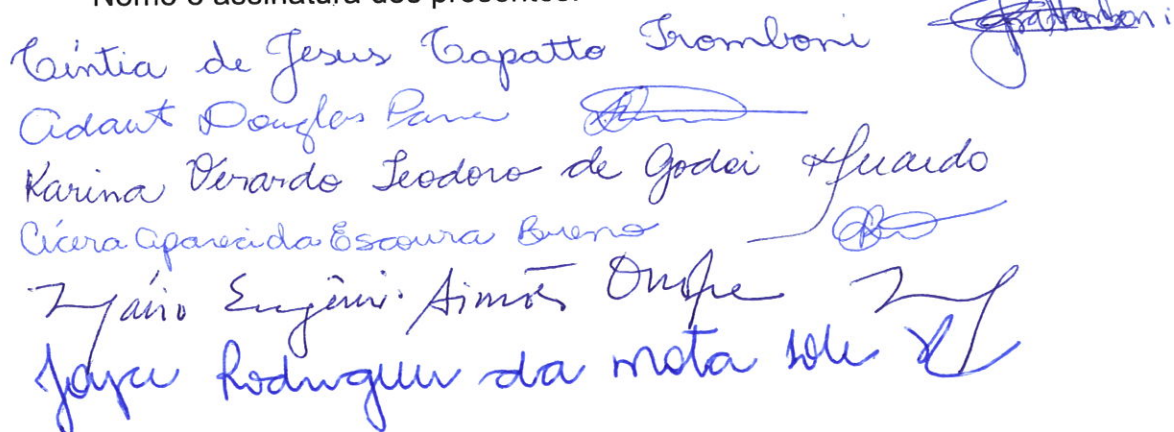 Nome e assinatura dos presentes:
Cíntia de Jesus Capatto Tromboni
Adaut Douglas
Karina Verardo Teodoro de Godoi
Cícera Aparecida Escoura Bueno
Mário Eugênio Simões Onofre
Joyce Rodrigues da Mota